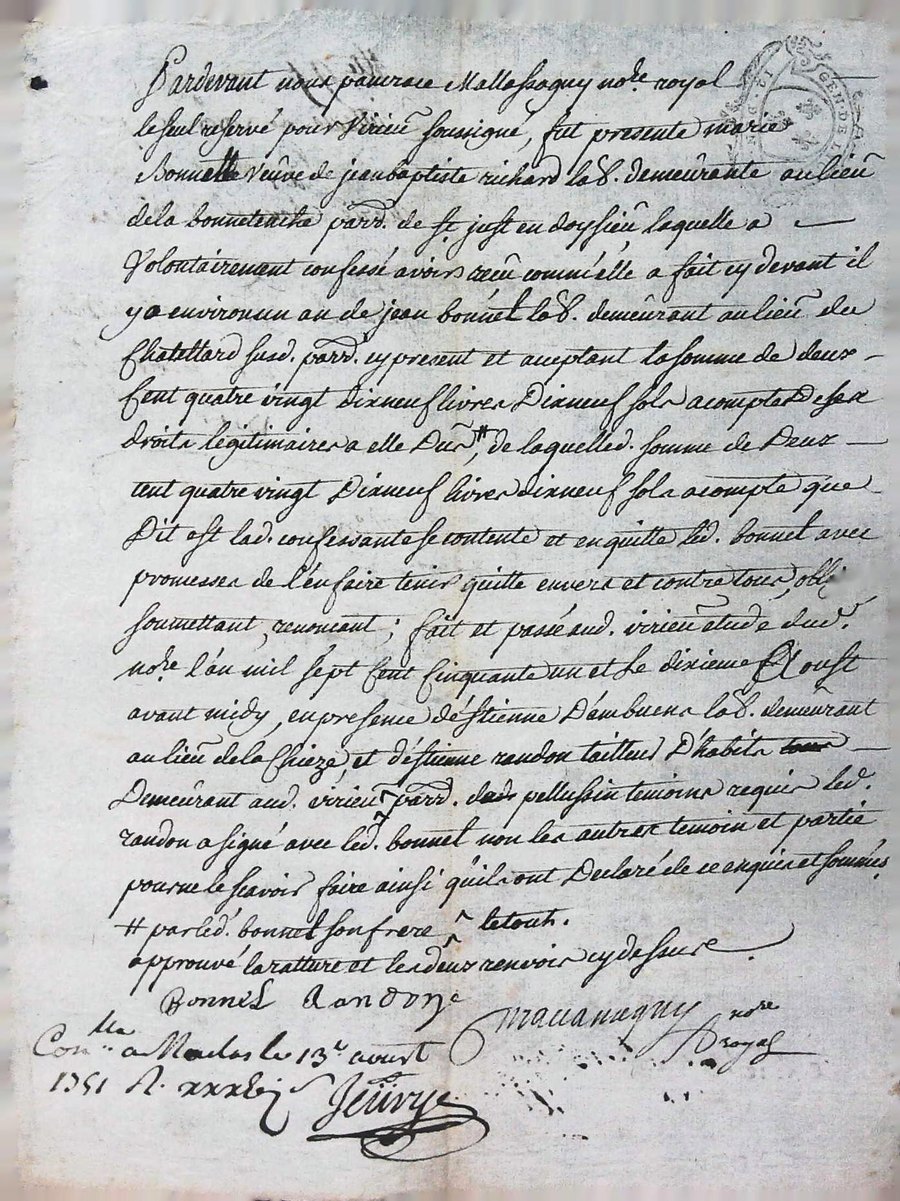 Pardevant nous pancrace Mallassagny no.re royal
le seul reservé pour Virieu soussigné, fut presente marie
Bonnette Veuve de jean baptiste richard lab.r demeurante au lieu
de la bonnetanche parr. de St just en doysieu laquelle a
Volontairement confessé avoir reçu comme elle a fait cy devant il
y a environ un an de jean bonnet lab.r demeurant au lieu du
Chatellard susd. parr. cy present et aceptant la somme de deux
Cent quatre vingt dixneuf livres Dixneuf sols acomptes de ses
droits légitimaires a elle Dus #, de laquelled. somme de Deux
cent quatre vingt Dixneuf livres dixneuf sols acompte que
Dit est lad. confessante se contente et en quitte led. bonnet avec
promesses de l'en faire tenir quitte envers et contre tous, obli
soumettant, renoncant; fait et passé aud. virieu étude dud.
no.re l'an mil sept Cent Cinquante un et le dixieme Aoust
avant midy, en presence d'éstienne Dembuens lab.r demeurant
au lieu de la Chieze et d'éstienne randon tailleur D'habits
Demeurant aud. virieu parr. de pellussin temoins requis led.
randon a signé avec led. bonnet non les autres temoin et partie
pour ne le scavoir faire ainsi qu'ils ont Declaré de ce enquis et sommés
# par led. bonnet son frere ^ le tout.
approuvé la ratture et les deux renvois cy dessus
Bonnet Randon
no.re
royal
Con.lle a Maclas le 13.e aoust
1751 R.